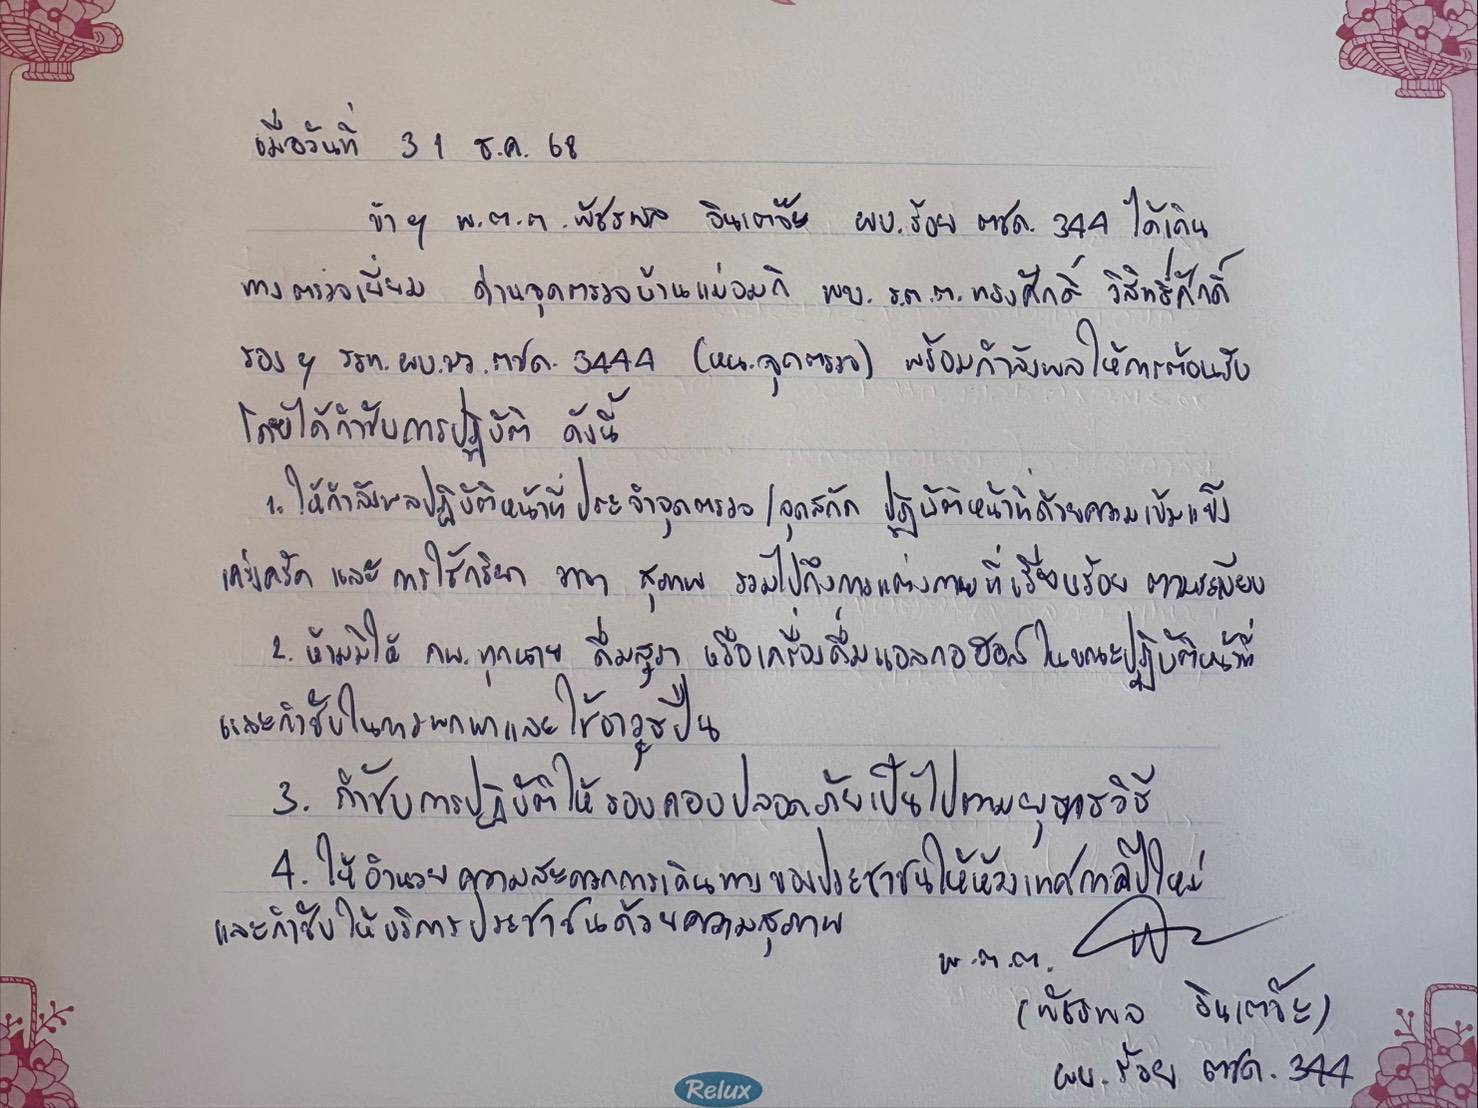 เมื่อวันที่ 31 ธ.ค. 68
ข้า ฯ พ.ต.ต. พัชรพล อินเตจ๊ะ ผบ.ร้อย ตชด. 344 ได้เดิน
ทางตรวจเยี่ยม ด่านจุดตรวจบ้านแม่อมกิ พบ. ร.ต.ต. ทรงศักดิ์ วิสิทธิ์ศักดิ์
รอง ฯ รรท. ผบ.มว.ตชด. 3444 (หน.จุดตรวจ) พร้อมกำลังพลให้การต้อนรับ
โดยได้กำชับการปฏิบัติ ดังนี้
1. ให้กำลังพลปฏิบัติหน้าที่ประจำจุดตรวจ/จุดสกัด ปฏิบัติหน้าที่ด้วยความเข้มแข็ง
เคร่งครัด และ การใช้กริยา วาจา สุภาพ รวมไปถึงการแต่งกายที่เรียบร้อย ตามระเบียบ
2. ห้ามมิให้ กพ. ทุกนาย ดื่มสุรา หรือเครื่องดื่มแอลกอฮอล์ ในขณะปฏิบัติหน้าที่
และกำชับในการพกพาและใช้อาวุธปืน
3. กำชับการปฏิบัติให้รอบคอบปลอดภัยเป็นไปตามยุทธวิธี
4. ให้อำนวยความสะดวกการเดินทางของประชาชนให้ห้วงเทศกาลปีใหม่
และกำชับให้บริการประชาชนด้วยความสุภาพ
พ.ต.ต.
(พัชรพล อินเตจ๊ะ)
ผบ.ร้อย ตชด. 344
Relux